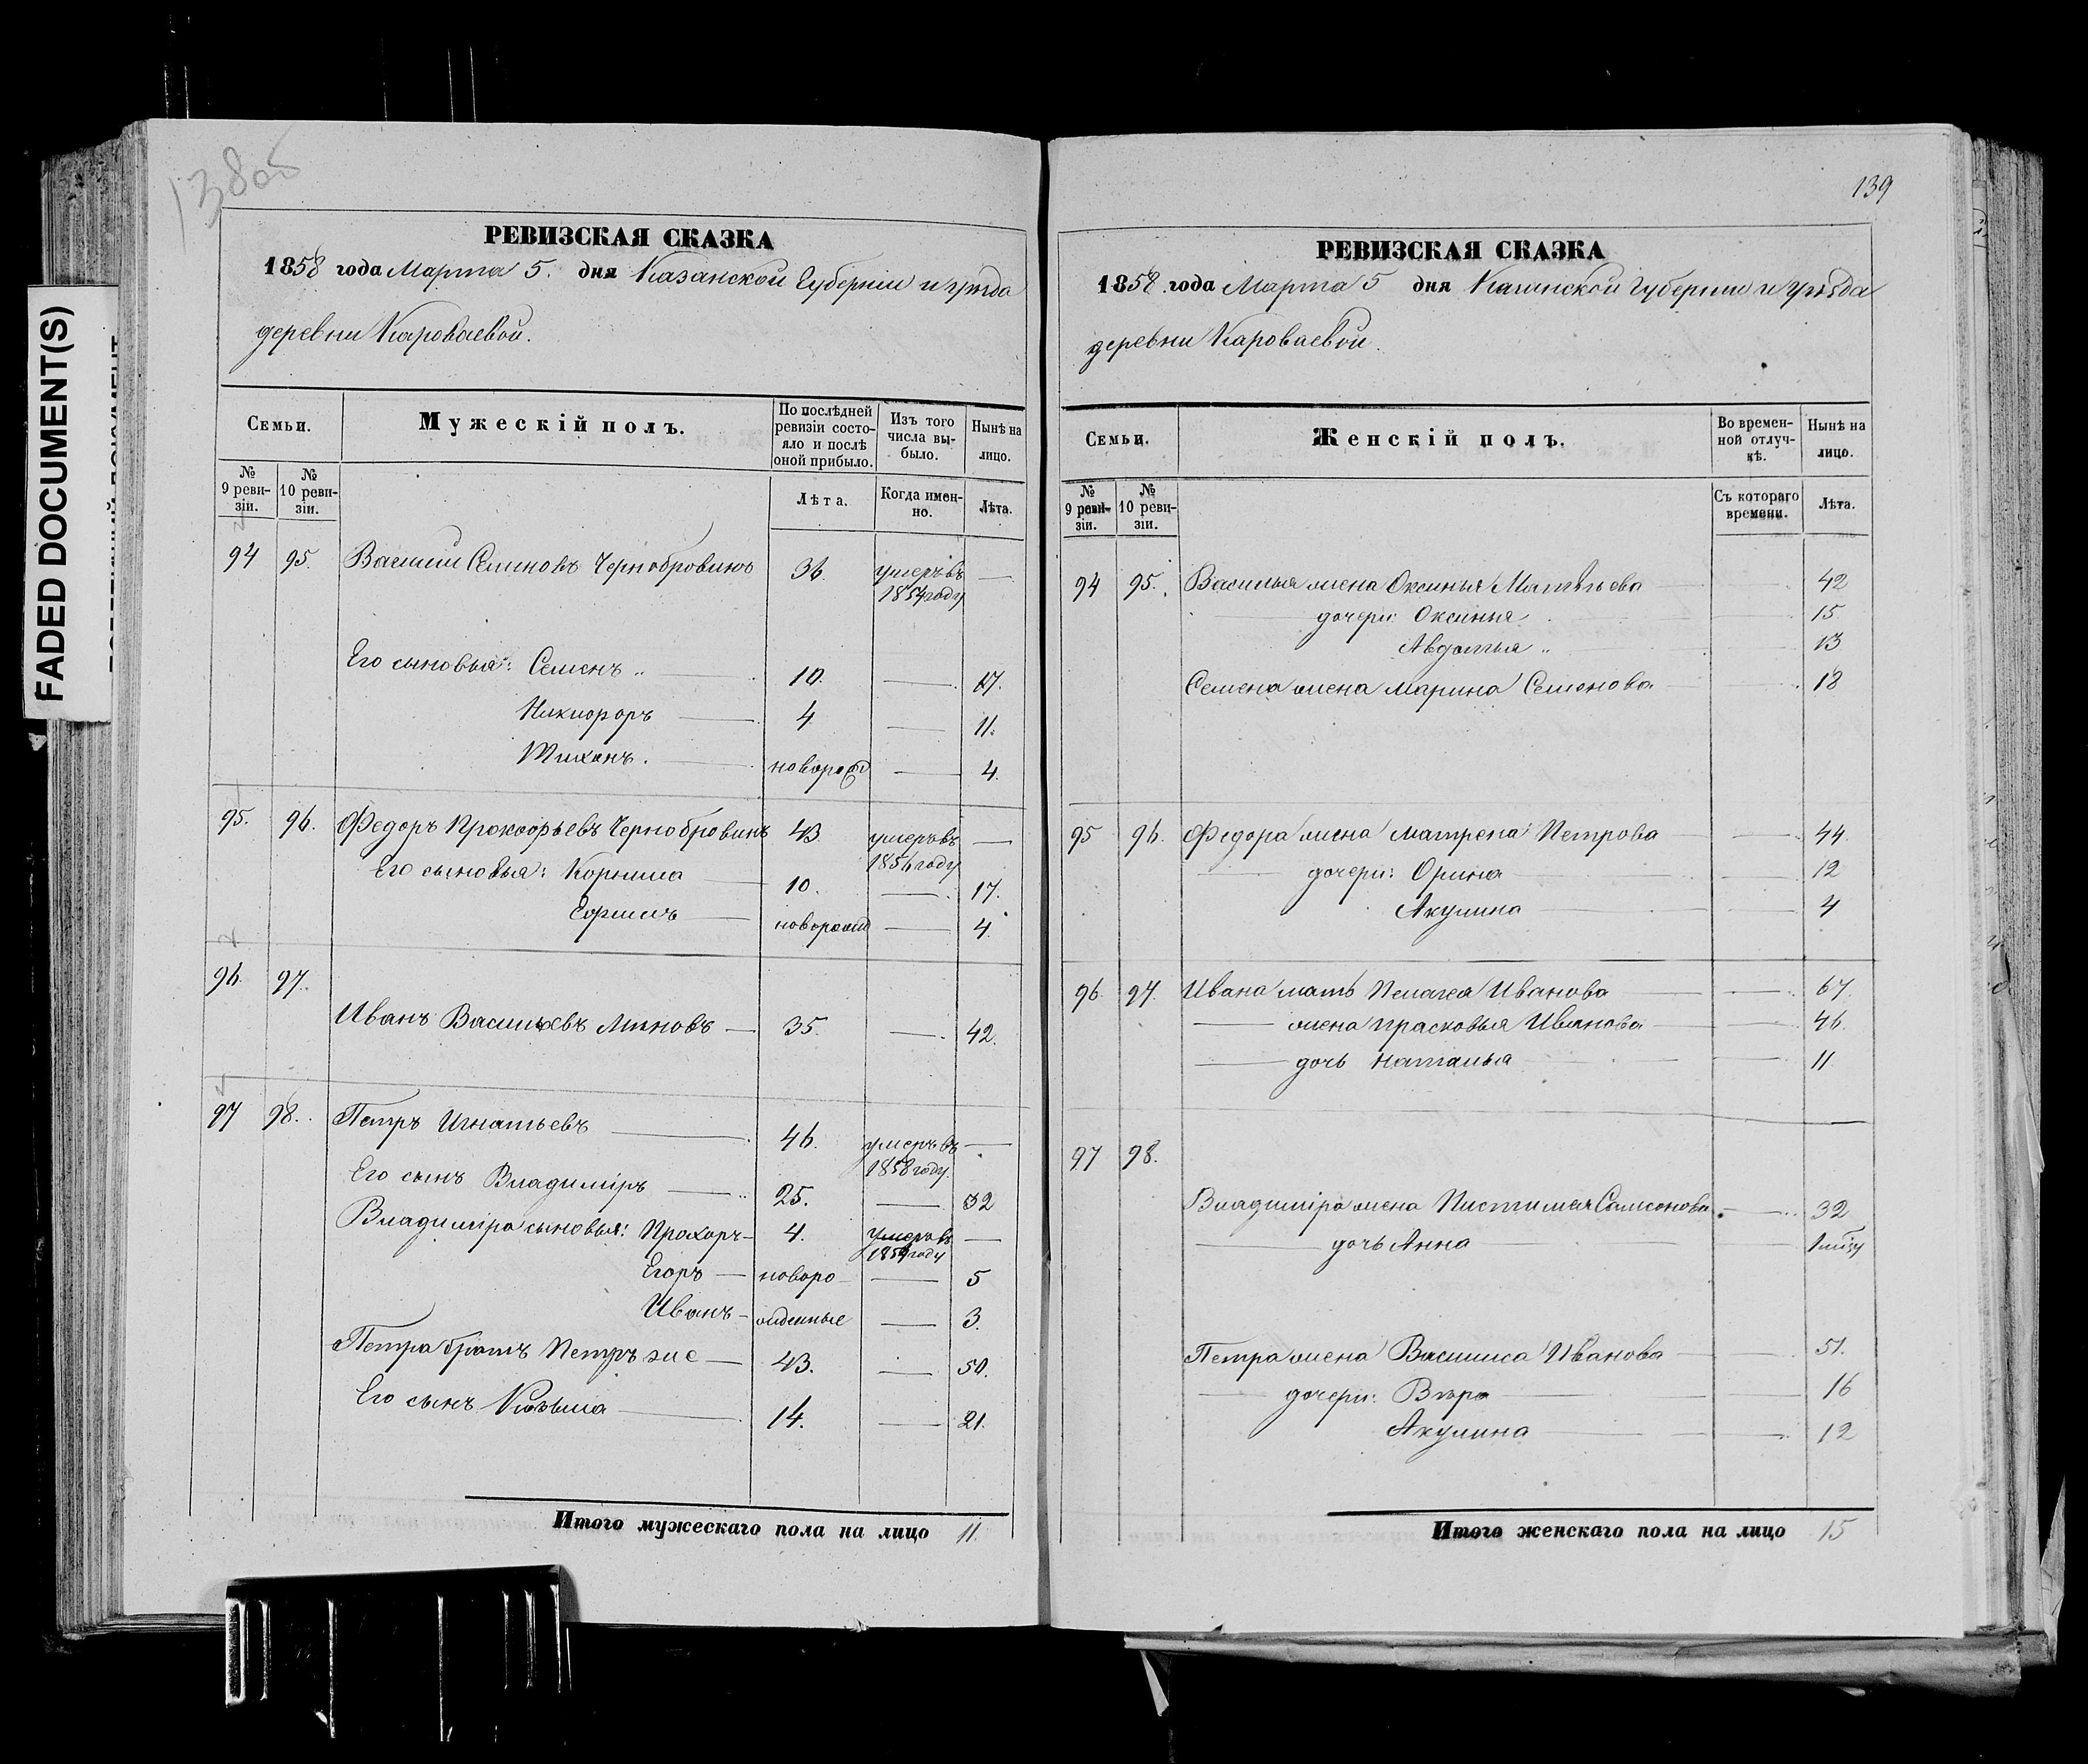 FADED DOCUMENT(S)
138об
РЕВИЗСКАЯ СКАЗКА
1858 года Марта 5. дня Казанской Губерніи и уѣзда
деревни Кароваевой.
Семьи.
Мужескій полъ.
По послѣдней ревизіи состояло и послѣ оной прибыло.
Изъ того числа выбыло.
Нынѣ на лицо.
№ 9 ревизіи.
№ 10 ревизіи.
Лѣта.
Когда именно.
Лѣта.
94 95. Василий Семеновъ Чернобровинъ 36. умеръ въ 1854 году —
Его сыновья: Семенъ 10. — 17.
Никифоръ 4 — 11.
Тихонъ.новорожд — 4.
95. 96. Федоръ Прокофьевъ Чернобровинъ 43. умеръ въ 1856 году —
Его сыновья: Корнила 10. — 17.
Ефимъ новорожд — 4.
96. 97.
Иванъ Васильевъ Миновъ — 35. — 42.
97 98. Петръ Игнатьевъ 46. умеръ въ 1858 году —
Его сынъ Владимиръ 25. — 32
Владимира сыновья: Прохоръ — 4. умеръ въ 1854 году —
Егоръ — новоро — 5
Иванъ — жденные — 3.
Петра братъ Петръ же — 43. — 50.
Его сынъ Козьма 14. — 21.
Итого мужескаго пола на лицо 11.
139
РЕВИЗСКАЯ СКАЗКА
1858 года Марта 5 дня Казанской Губерніи и уѣзда
деревни Кароваевой.
Семьи.
Женскій полъ.
Во временной отлучкѣ.
Нынѣ на лицо.
№ 9 ревизіи.
№ 10 ревизіи.
Съ котораго времени.
Лѣта.
94 95. Василья жена Оксинья Матвѣева 42
дочери: Оксинья 15
Авдотья 13
Семена жена Марина Семенова 18
95 96. Федора жена Матрена Петрова — 44.
дочери: Орина — 12
Акулина — 4
96. 97. Ивана мать Пелагея Иванова — 67.
жена Прасковья Иванова — 46.
дочь Наталья — 11
97 98.
Владимира жена Пистимея Самсонова — 32
дочь Анна
Петра жена Василиса Иванова — 51.
дочери: Вѣра — 16
Акулина — 12
Итого женскаго пола на лицо 15